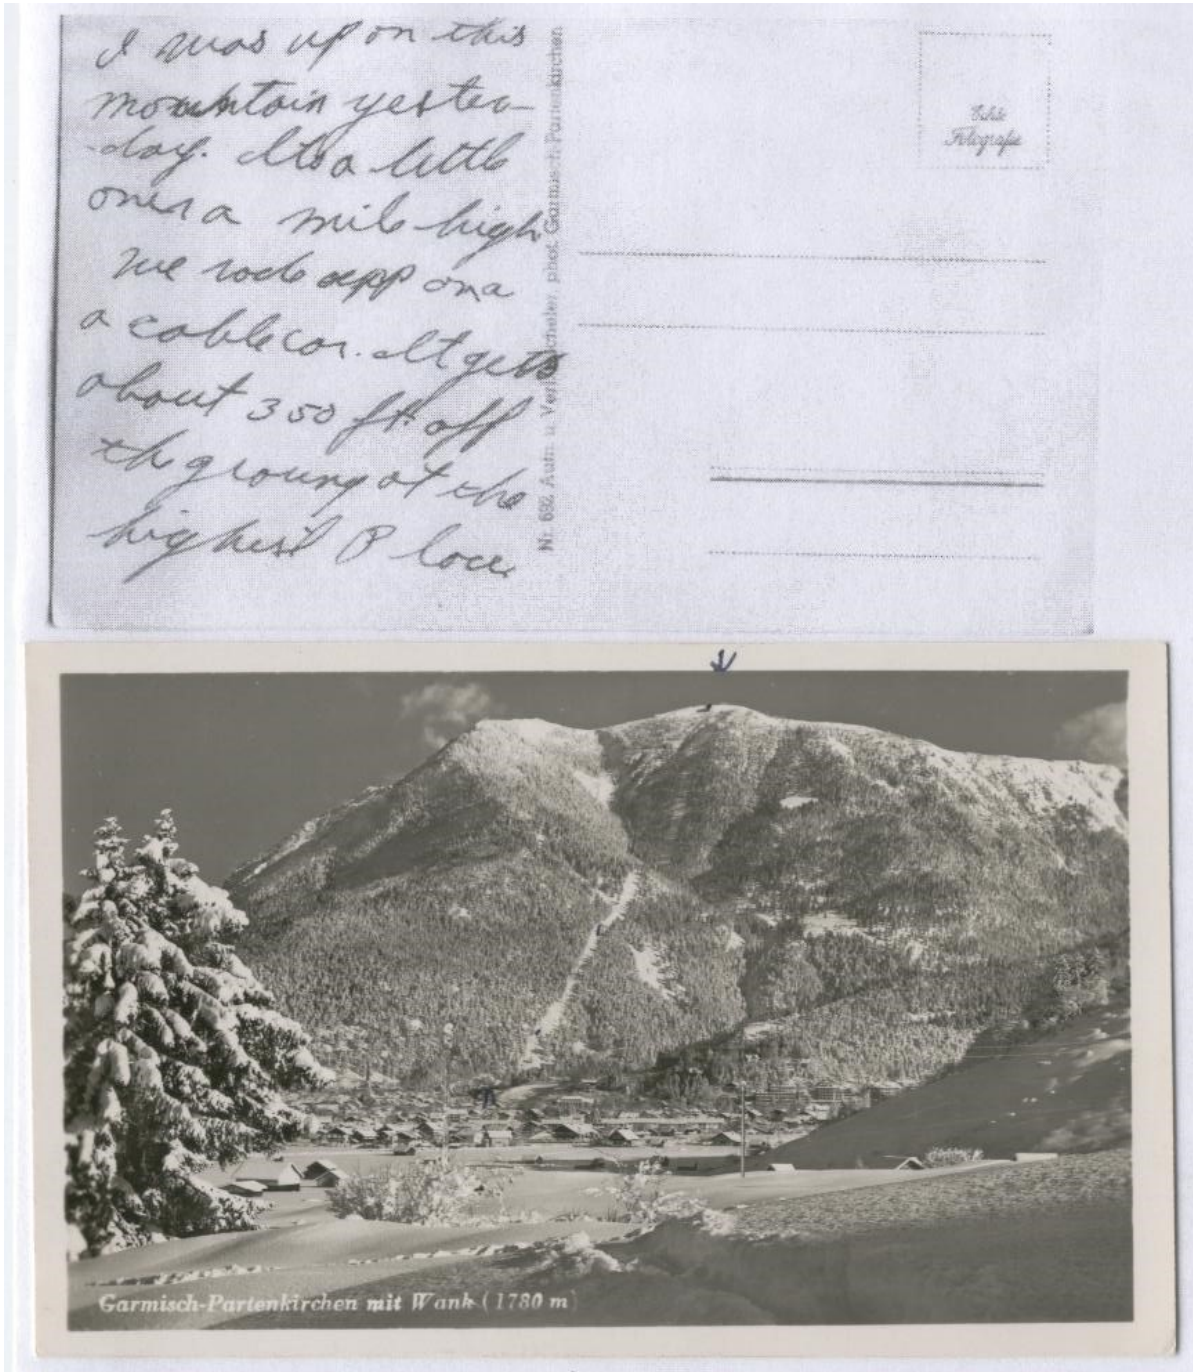 I was up on this
mountain yester-
day. Its a little
over a mile high
We rode upp on a
a cable car. It gets
about 350 ft. off
the groung at the
highest Place
Nr. 692 Aufn. u. Verl. phot. Garmisch-Partenkirchen
Echte
Fotografie
Garmisch-Partenkirchen mit Wank (1780 m)